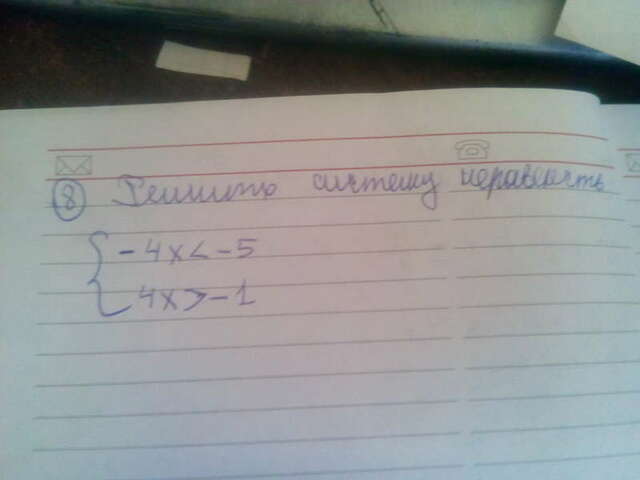 8 Решить систему неравеств
{ -4x < -5
4x > -1